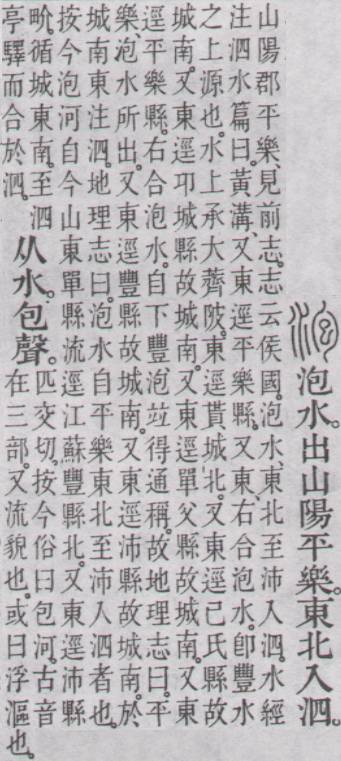 泡水。出山陽平樂。東北入泗。
山陽郡平樂、見前志。志云侯國。泡水、東北至沛入泗。水經
注泗水篇曰。黃溝、又東逕平樂縣。又東、右合泡水。卽豐水
之上源也。水上承大薺陂。東逕貰城北。又東逕己氏縣故
城南。又東逕卭城縣故城南。又東逕單父縣故城南。又東
逕平樂縣。右合泡水。自下豐泡竝得通稱。故地理志曰。平
樂、泡水所出。又東逕豐縣故城南。又東逕沛縣故城南。於
城南東注泗。地理志曰。泡水自平樂東北至沛入泗者也。
按今泡河自今山東單縣流逕江蘇豐縣北。又東逕沛縣
畍。循城東南。至泗
亭驛而合於泗。
从水。包聲。
匹交切。按今俗曰包河。古音
在三部。又流貌也。或曰浮漚也。